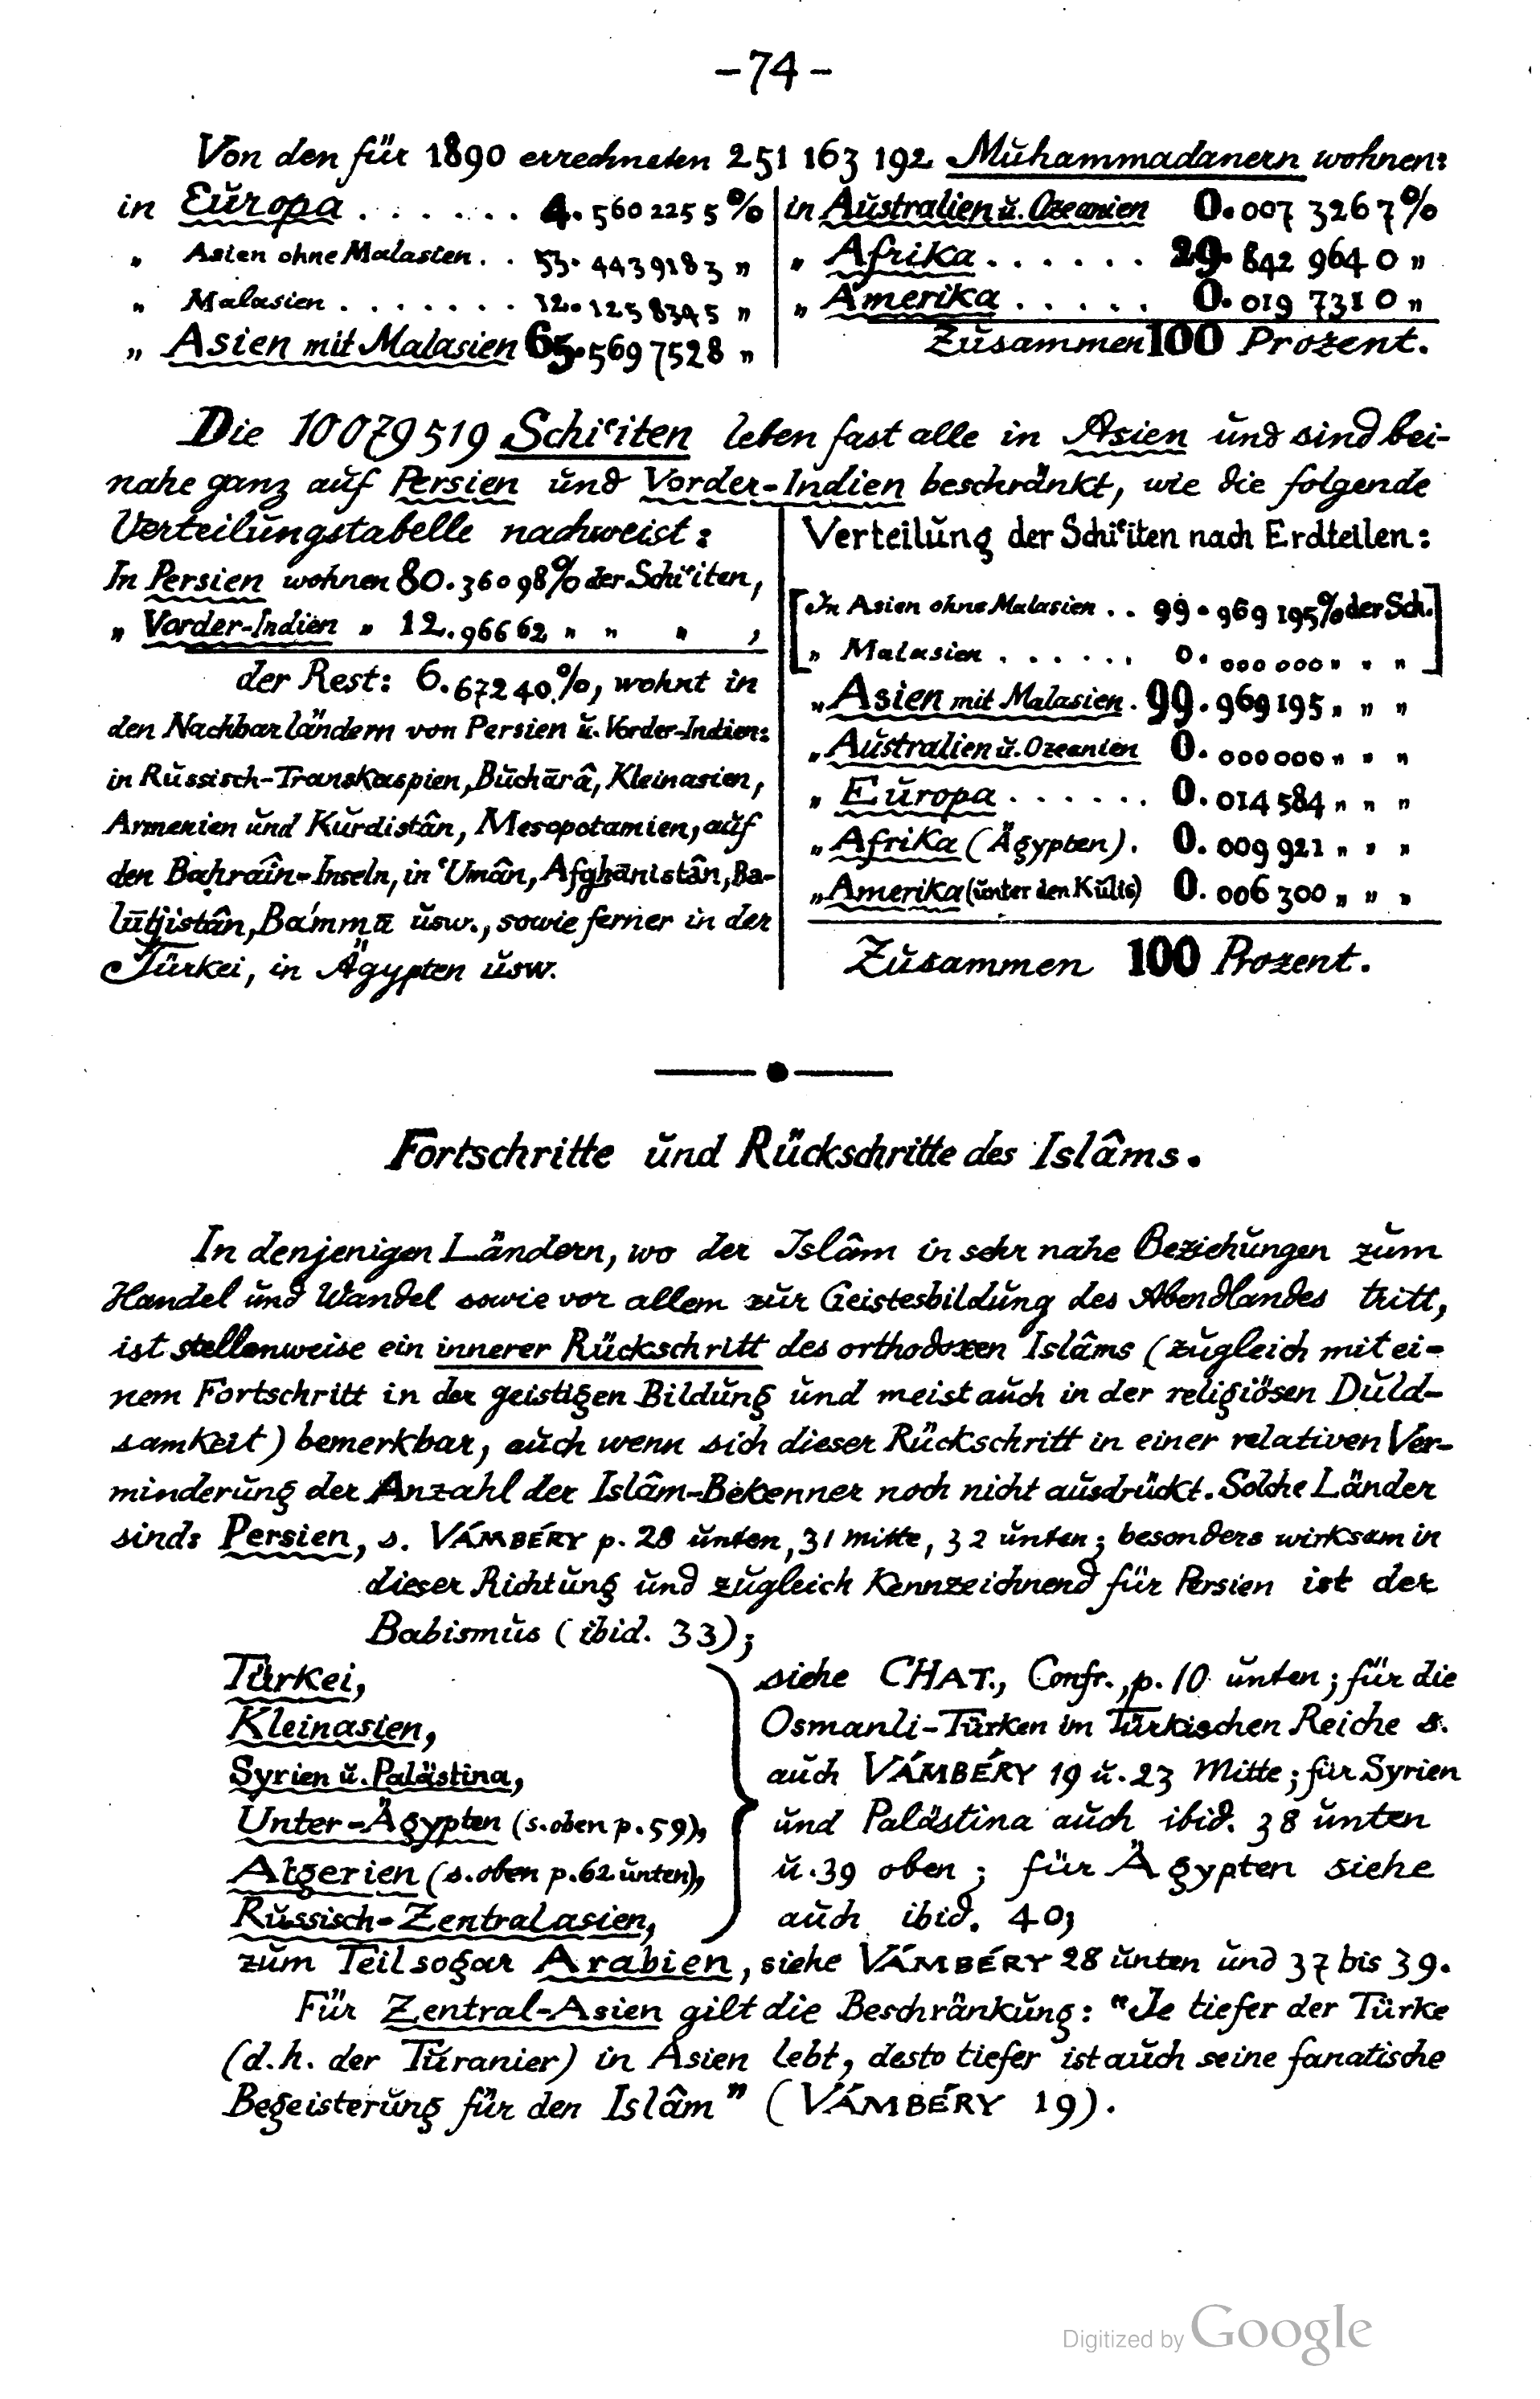 -74-
Von den für 1890 errechneten 251 163 192 Muhammadanern wohnen:
in Europa . . . . . . . 4.560 225 5 %
" Asien ohne Malasien . . 53.443 918 3 "
" Malasien . . . . . . . 12.125 834 5 "
" Asien mit Malasien 65.569 752 8 "
in Australien u. Ozeanien 0.007 326 7 %
" Afrika . . . . . . 29.842 964 0 "
" Amerika . . . . . 0.019 731 0 "
Zusammen 100 Prozent.
Die 10 079 519 Schiʿiten leben fast alle in Asien und sind bei-
nahe ganz auf Persien und Vorder-Indien beschränkt, wie die folgende
Verteilungstabelle nachweist:
In Persien wohnen 80.360 98 % der Schiʿiten,
" Vorder-Indien " 12.966 62 " " " ,
der Rest: 6.672 40 %, wohnt in
den Nachbarländern von Persien u. Vorder-Indien:
in Russisch-Transkaspien, Buchārâ, Kleinasien,
Armenien und Kurdistân, Mesopotamien, auf
den Baḥraîn-Inseln, in ʿUmân, Afghānistân, Ba-
lūtjistân, Bámmā usw., sowie ferner in der
Türkei, in Ägypten usw.
Verteilung der Schiʿiten nach Erdteilen:
[In Asien ohne Malasien . . 99.969 195 % der Sch.]
" Malasien . . . . . . 0.000 000 " " "
" Asien mit Malasien . 99.969 195 " " "
" Australien u. Ozeanien 0.000 000 " " "
" Europa . . . . . . 0.014 584 " " "
" Afrika (Ägypten) . 0.009 921 " " "
" Amerika (unter den Kulis) 0.006 300 " " "
Zusammen 100 Prozent.
Fortschritte und Rückschritte des Islâms.
In denjenigen Ländern, wo der Islâm in sehr nahe Beziehungen zum
Handel und Wandel sowie vor allem zur Geistesbildung des Abendlandes tritt,
ist stellenweise ein innerer Rückschritt des orthodoxen Islâms (zugleich mit ei-
nem Fortschritt in der geistigen Bildung und meist auch in der religiösen Duld-
samkeit) bemerkbar, auch wenn sich dieser Rückschritt in einer relativen Ver-
minderung der Anzahl der Islâm-Bekenner noch nicht ausdrückt. Solche Länder
sind: Persien, s. VÁMBÉRY p. 28 unten, 31 mitte, 32 unten; besonders wirksam in
dieser Richtung und zugleich kennzeichnend für Persien ist der
Babismus (ibid. 33);
Türkei,
Kleinasien,
Syrien u. Palästina,
Unter-Ägypten (s. oben p. 59),
Algerien (s. oben p. 62 unten),
Russisch-Zentralasien,
siehe CHAT., Confr., p. 10 unten; für die
Osmanli-Türken im Türkischen Reiche s.
auch VÁMBÉRY 19 u. 23 Mitte; für Syrien
und Palästina auch ibid. 38 unten
u. 39 oben; für Ägypten siehe
auch ibid. 40;
zum Teil sogar Arabien, siehe VÁMBÉRY 28 unten und 37 bis 39.
Für Zentral-Asien gilt die Beschränkung: "Je tiefer der Türke
(d.h. der Turanier) in Asien lebt, desto tiefer ist auch seine fanatische
Begeisterung für den Islâm" (VÁMBÉRY 19).
Digitized by Google